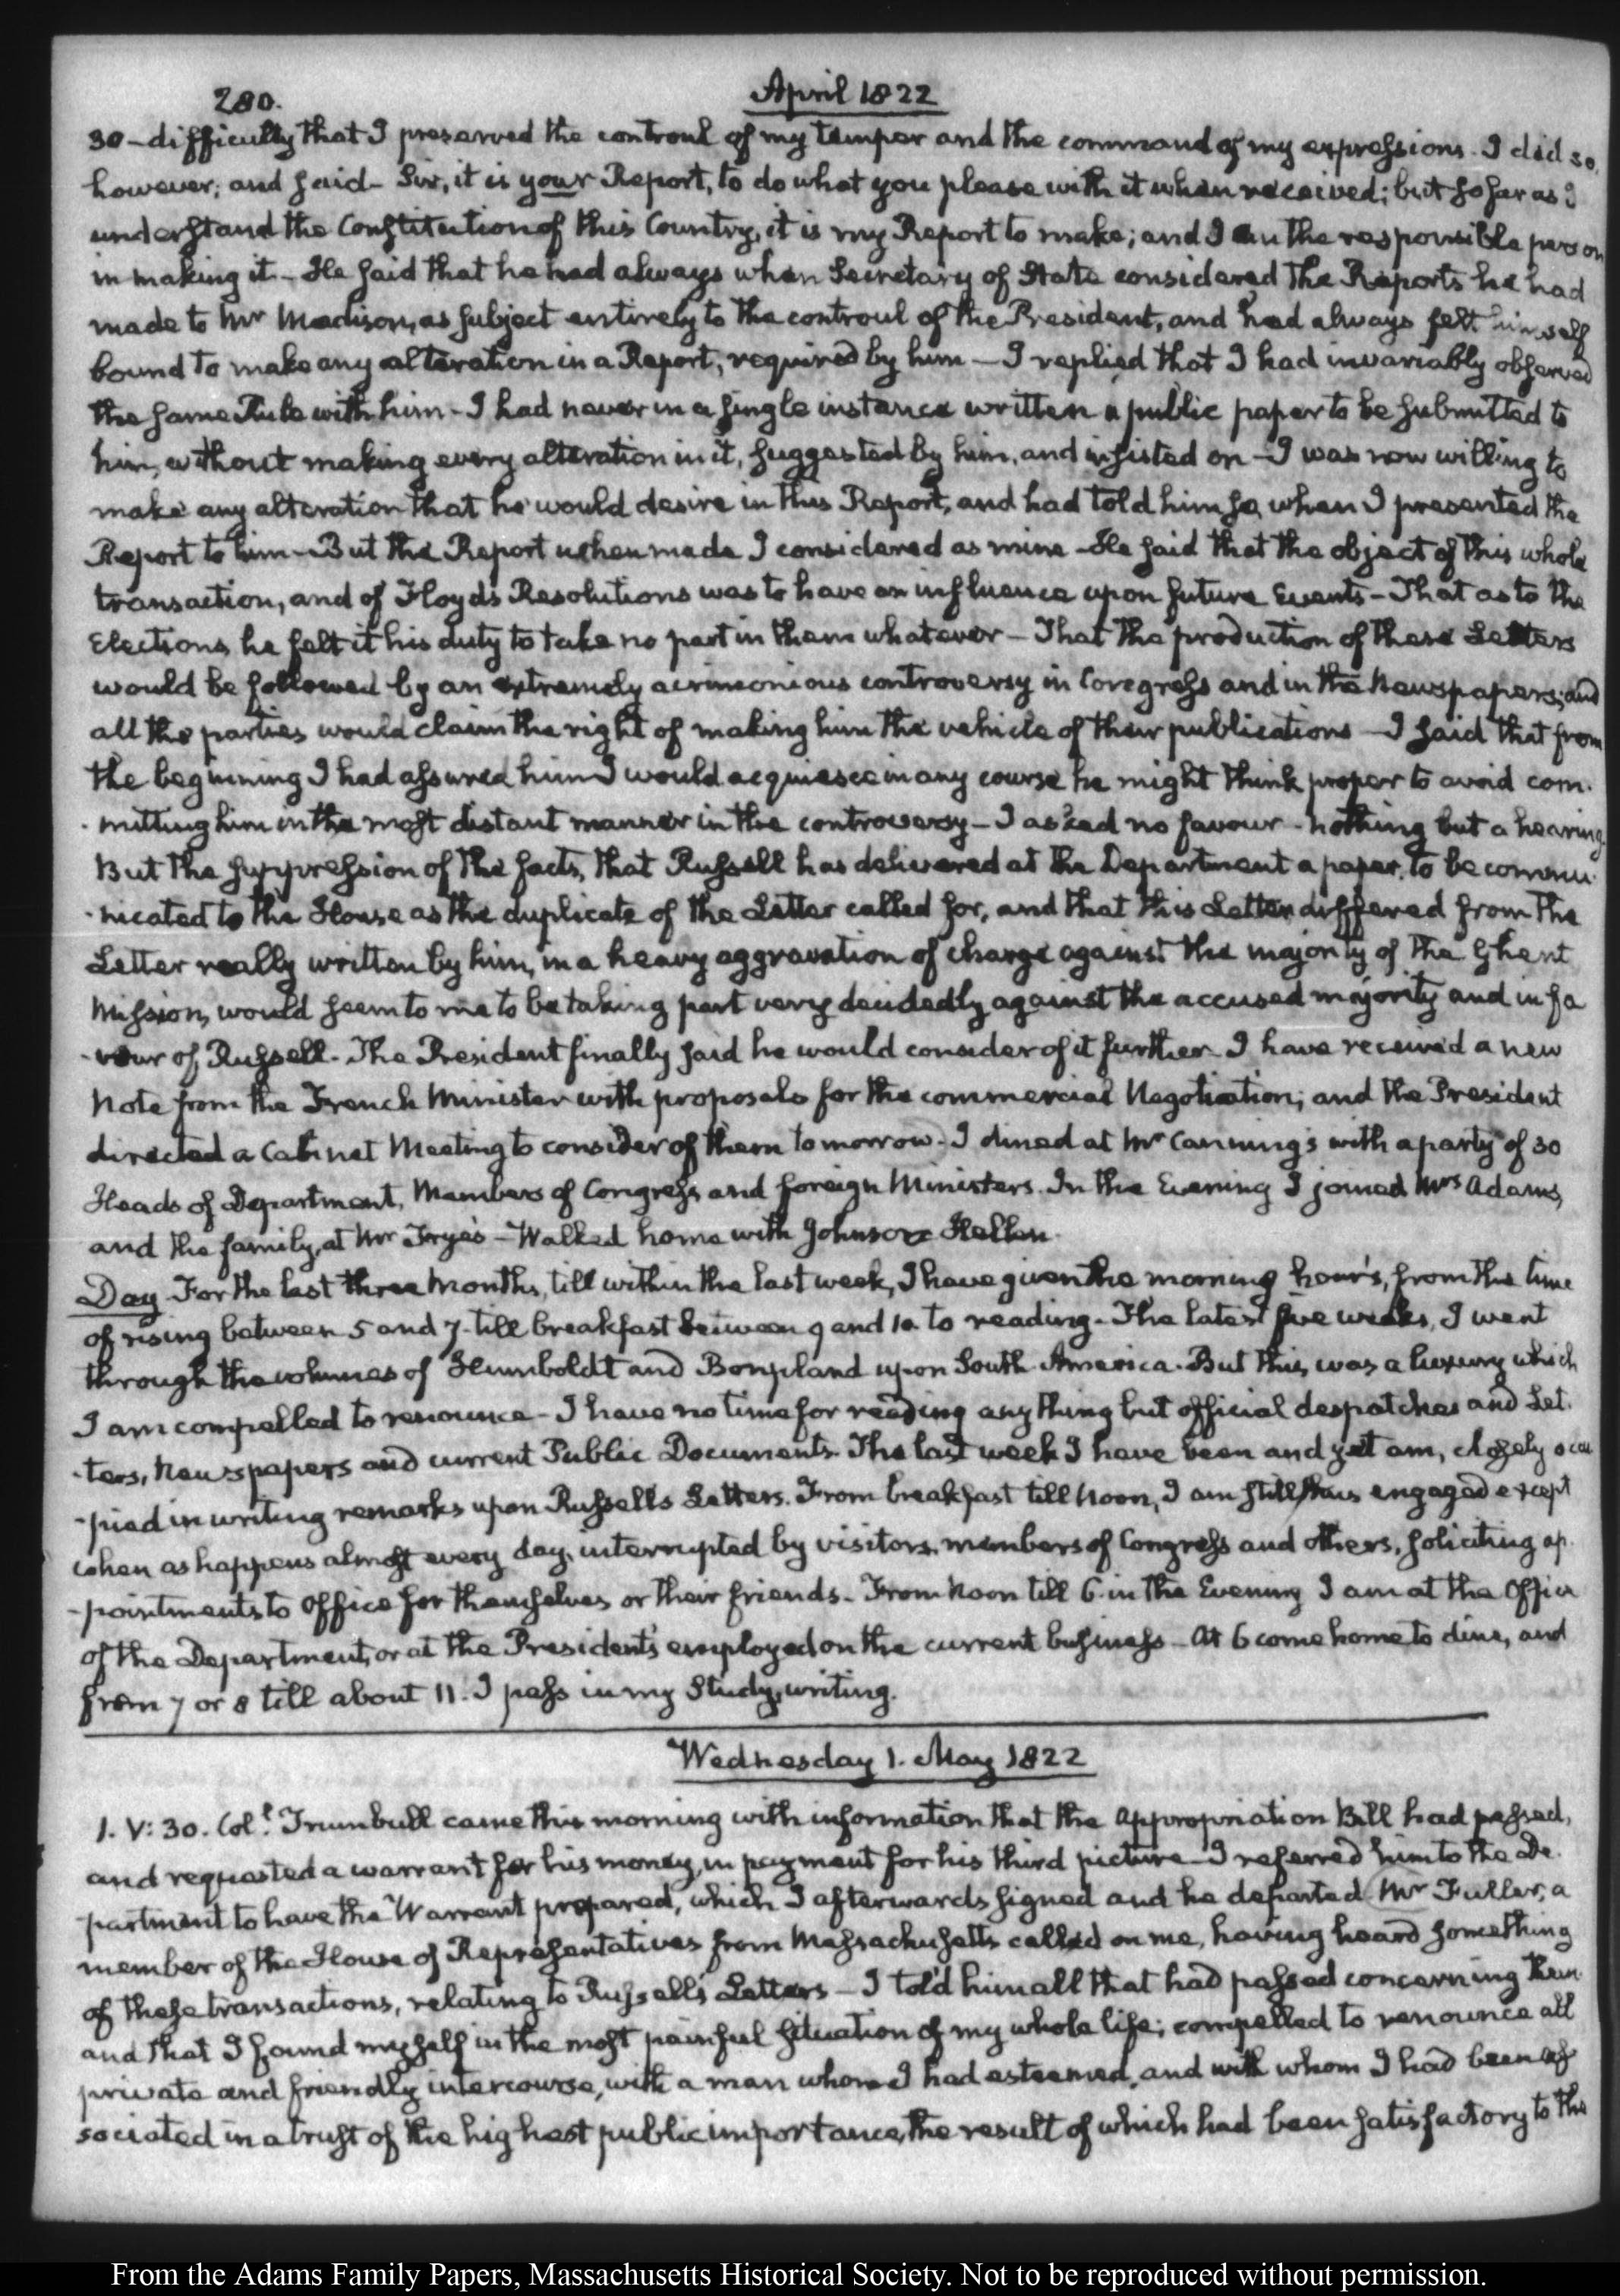 280.
April 1822
30 - difficulty that I preserved the controul of my temper and the command of my expressions. I did so,
however; and said - Sir, it is your Report, to do what you please with it when received; but so far as I
understand the Constitution of this Country, it is my Report to make; and I am the responsible person
in making it - He said that he had always when Secretary of State considered the Reports he had
made to Mr Madison, as subject entirely to the controul of the President, and had always felt himself
bound to make any alteration in a Report, required by him - I replied that I had invariably observed
the same Rule with him - I had never in a single instance written a public paper to be submitted to
him, without making every alteration in it, suggested by him, and insisted on - I was now willing to
make any alteration that he would desire in this Report, and had told him so, when I presented the
Report to him - But the Report when made I considered as mine - He said that the object of this whole
transaction, and of Floyd's Resolutions was to have an influence upon future Events - That as to the
Elections he felt it his duty to take no part in them whatever - That the production of these Letters
would be followed by an extremely acrimonious controversy in Congress and in the Newspapers; and
all the parties would claim the right of making him the vehicle of their publications - I said that from
the beginning I had assured him I would acquiesce in any course he might think proper to avoid com-
-mitting him in the most distant manner in the controversy - I asked no favour - nothing but a hearing.
But the suppression of the facts, that Russell has delivered at the Department a paper, to be commu-
-nicated to the House as the duplicate of the Letter called for, and that this Letter differed from the
Letter really written by him, in a heavy aggravation of charge against the majority of the Ghent
Mission, would seem to me to be taking part very decidedly against the accused majority and in fa
-vour of Russell - The President finally said he would consider of it further. I have received a new
Note from the French Minister with proposals for the commercial Negotiation; and the President
directed a Cabinet Meeting to consider of them tomorrow - I dined at Mr Canning's with a party of 30
Heads of Department, Members of Congress and foreign Ministers. In the Evening I joined Mrs Adams,
and the family, at Mr Frye's - Walked home with Johnson Hellen.
Day. For the last three Months, till within the last week, I have given the morning hours, from the time
of rising between 5 and 7. till breakfast between 9 and 10. to reading - The latest five weeks, I went
through the volumes of Humboldt and Bonpland upon South America. But this was a luxury which
I am compelled to renounce - I have no time for reading any thing but official despatches and Let-
-ters, Newspapers and current Public Documents. The last week I have been and yet am, closely occu
-pied in writing remarks upon Russell's Letters. From breakfast till Noon, I am still thus engaged except
when as happens almost every day, interrupted by visitors, members of Congress and others, soliciting ap-
-pointments to Office for themselves or their friends - From Noon till 6. in the Evening I am at the Office
of the Department, or at the President's employed on the current business - At 6 come home to dine, and
from 7 or 8 till about 11. I pass in my Study, writing.
Wednesday 1. May 1822
1. V: 30. Coll. Trumbull came this morning with information that the Appropriation Bill had passed,
and requested a warrant for his money, in payment for his third picture - I referred him to the De-
-partment to have the Warrant prepared, which I afterwards signed and he departed. Mr Fuller, a
member of the House of Representatives from Massachusetts called on me, having heard something
of these transactions, relating to Russell's Letters - I told him all that had passed concerning them
and that I found myself in the most painful situation of my whole life; compelled to renounce all
private and friendly intercourse, with a man whom I had esteemed, and with whom I had been as
sociated in a trust of the highest public importance, the result of which had been satisfactory to the
From the Adams Family Papers, Massachusetts Historical Society. Not to be reproduced without permission.